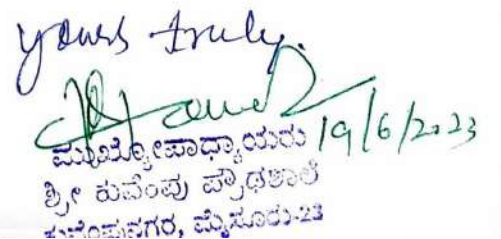 yours truly.
19/6/2023
ಮುಖ್ಯೋಪಾಧ್ಯಾಯರು
ಶ್ರೀ ಕುವೆಂಪು ಪ್ರೌಢಶಾಲೆ
ಕುವೆಂಪುನಗರ, ಮೈಸೂರು-23